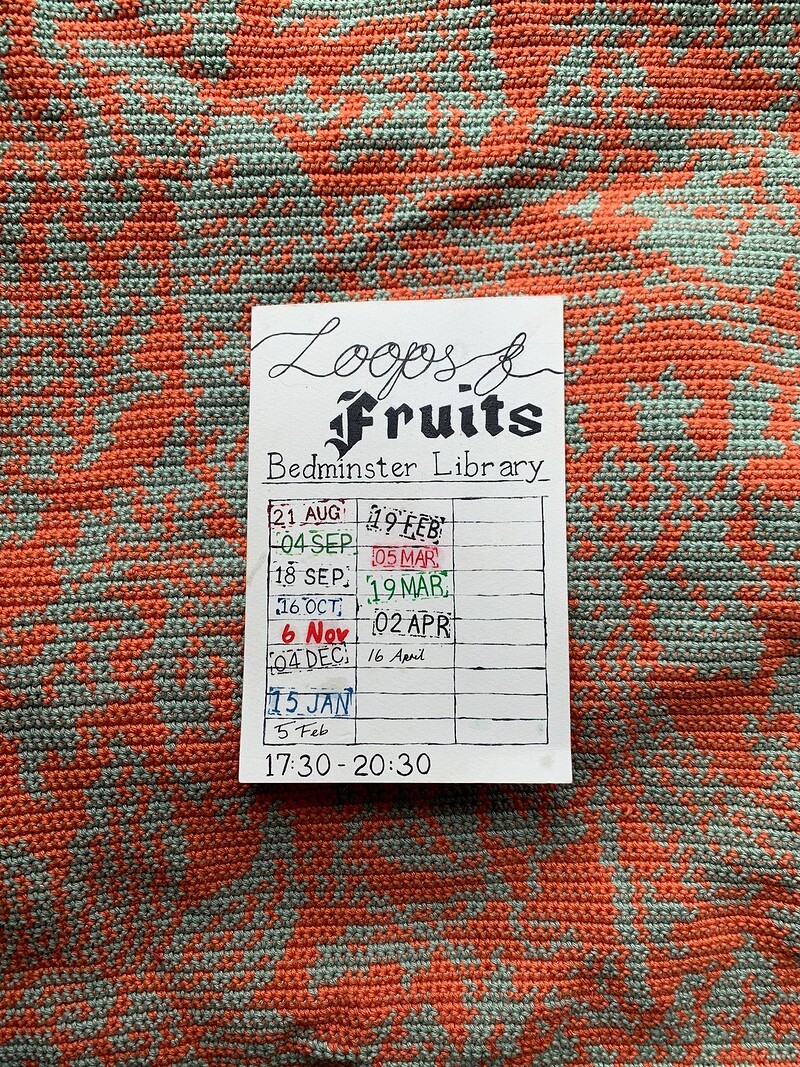 Loops &
Fruits
Bedminster Library
21 AUG
04 SEP
18 SEP
16 OCT
6 Nov
04 DEC
15 JAN
5 Feb
19 FEB
05 MAR
19 MAR
02 APR
16 April
17:30 - 20:30